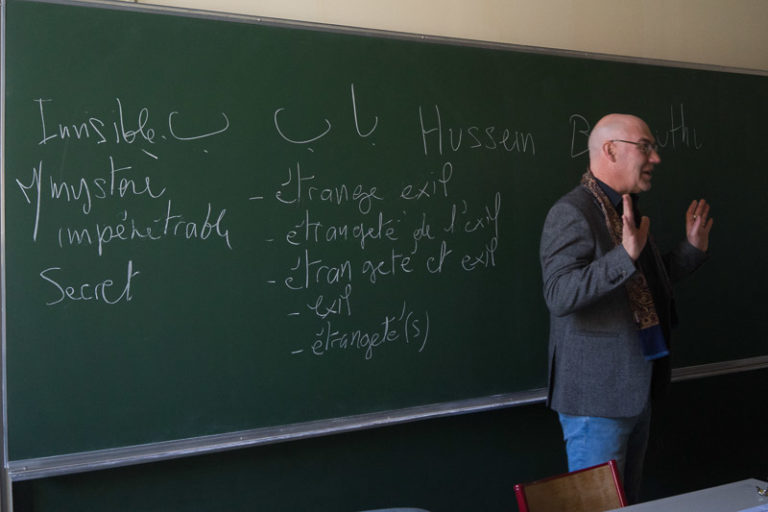 Invisible. ب ب Hussein
mystère
impénétrable
Secret
- étrange exil
- étrangeté de l'exil
- étrangeté et exil
- exil
- étrangeté(s)